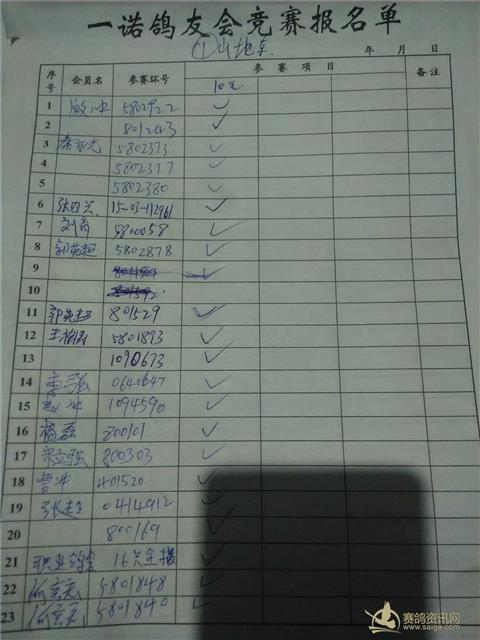 一诺鸽友会竞赛报名单
①山地车
年 月 日
序号 会员名 参赛环号 参赛项目 备注
10元
1 5802922 ✓
2 801243 ✓
3 5802373 ✓
4 5802377 ✓
5 5802380 ✓
6 15-03-112961 ✓
7 5800058 ✓
8 郭英超 5802878 ✓
9 ✓
10
11 郭英超 801529 ✓
12 5801893 ✓
13 1090673 ✓
14 0640647 ✓
15 1094590 ✓
16 杨磊 200101 ✓
17 800303 ✓
18 曹冲 401520 ✓
19 张超 0414912 ✓
20 800169 ✓
21 16关全指 ✓
22 5801848 ✓
23 5801840 ✓
赛鸽资讯网
www.saige.com